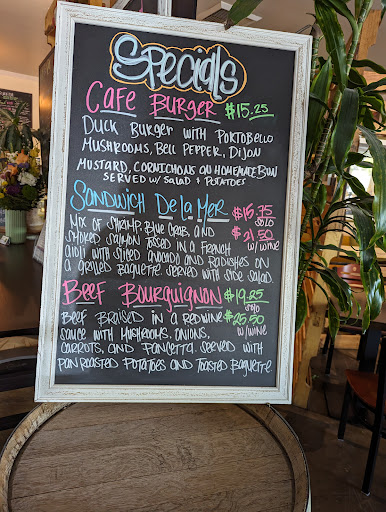 Specials
Cafe Burger $15.25
Duck Burger with Portobello
Mushrooms, Bell Pepper, Dijon
Mustard, Cornichons on Homemade Bun
Served w/ Salad & Potatoes
Sandwich De la Mer $15.75
solo
Mix of Shrimp, Blue Crab, and $21.50
w/ wine
Smoked Salmon tossed in a French
aioli with sliced avocado and radishes on
a grilled Baguette served with side salad.
Beef Bourguignon $19.25
solo
Beef Braised in a red wine $25.50
w/ wine
sauce with Mushrooms, onions,
carrots, and Pancetta. served with
Pan Roasted Potatoes and Toasted Baguette